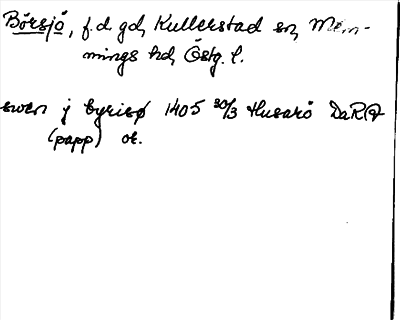 Börsjö, f.d. gd, Kullerstad sn, Mem-
mings hd, Östg. l.
swen j byrisø 1405 30/3 Husarö DaRA
(papp) or.